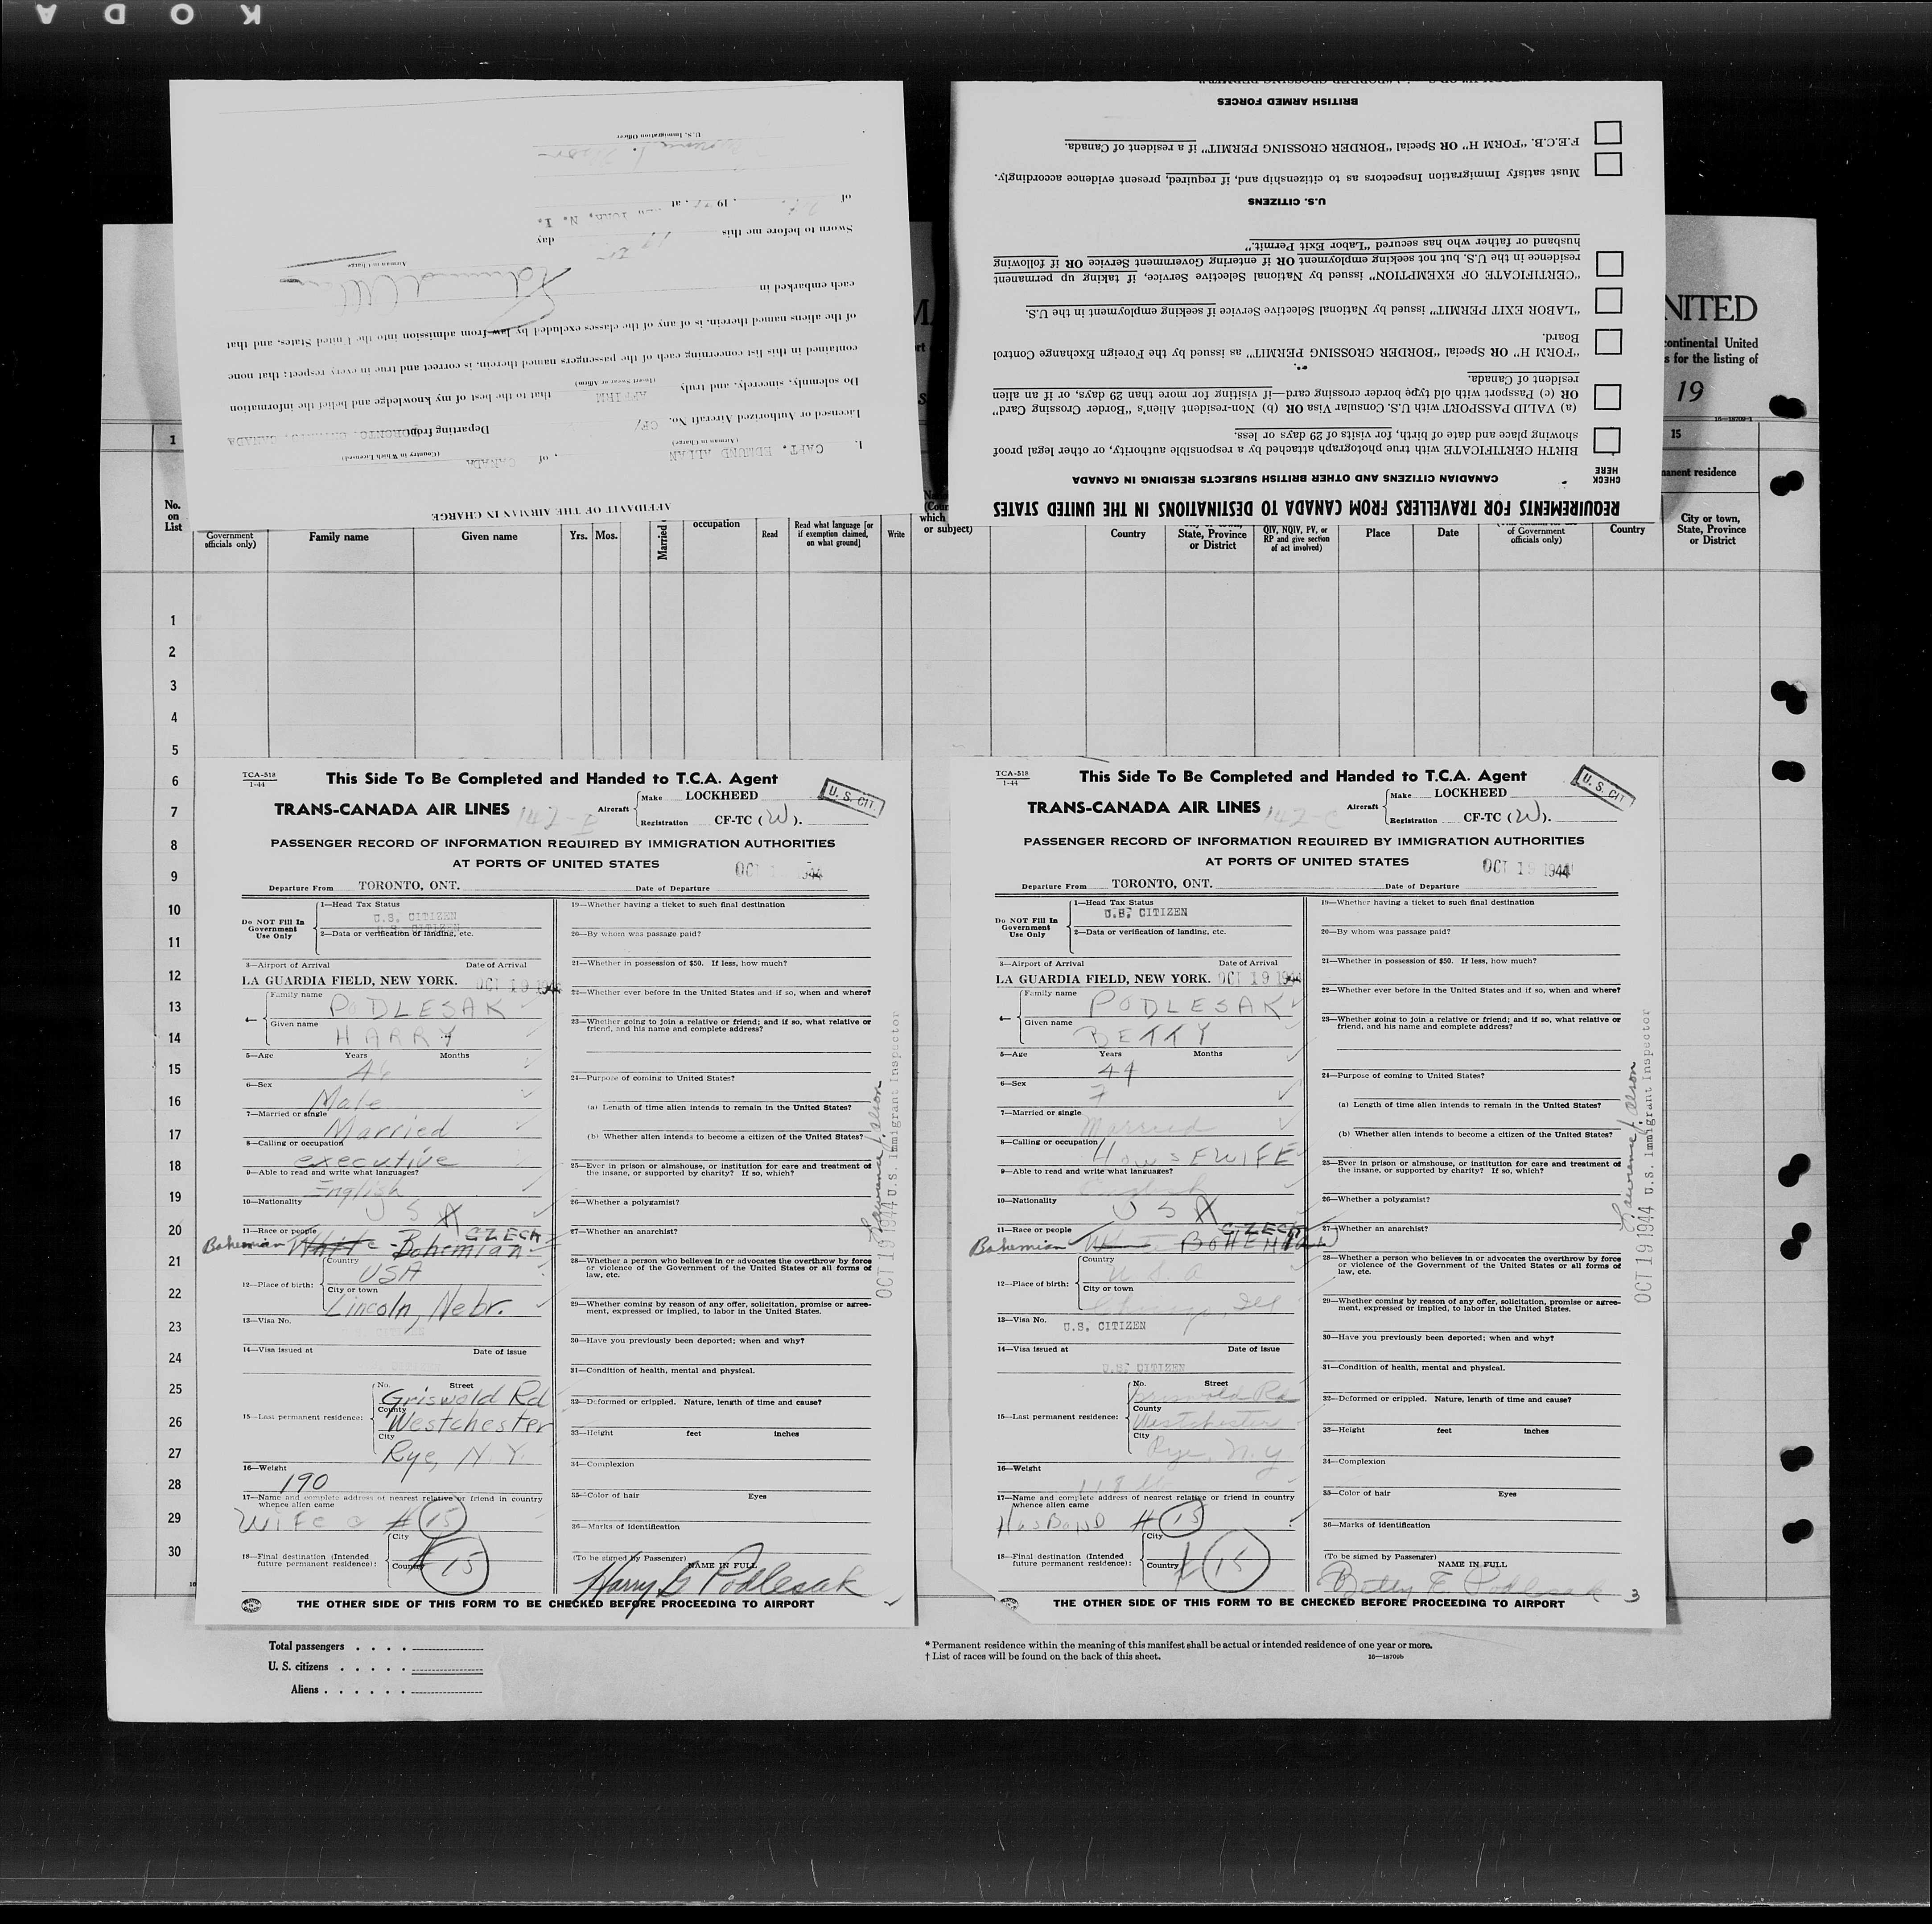 KODA
AFFIDAVIT OF THE AIRMAN IN CHARGE
I, CAPT. EDMUND ALLAN, of CANADA
(Airman in Charge) (Country in Which Licensed)
Licensed or Authorized Aircraft No. CF/ Departing from TORONTO, ONTARIO, CANADA
Do solemnly, sincerely, and truly AFFIRM that to the best of my knowledge and belief the information
(Insert Swear or Affirm)
contained in this list concerning each of the passengers named therein, is correct and true in every respect; that none
of the aliens named therein, is of any of the classes excluded by law from admission into the United States, and that
each embarked in
Airman in Charge
Sworn to before me this 19 day
of , 19 , at New York, N. Y.
U. S. Immigration Officer
REQUIREMENTS FOR TRAVELLERS FROM CANADA TO DESTINATIONS IN THE UNITED STATES
CHECK HERE
CANADIAN CITIZENS AND OTHER BRITISH SUBJECTS RESIDING IN CANADA
BIRTH CERTIFICATE with true photograph attached by a responsible authority, or other legal proof
showing place and date of birth, for visits of 29 days or less.
(a) VALID PASSPORT with U.S. Consular Visa OR (b) Non-resident Alien's "Border Crossing Card"
OR (c) Passport with old type border crossing card—if visiting for more than 29 days, or if an alien
resident of Canada.
"FORM H" OR Special "BORDER CROSSING PERMIT" as issued by the Foreign Exchange Control
Board.
"LABOR EXIT PERMIT" issued by National Selective Service if seeking employment in the U.S.
"CERTIFICATE OF EXEMPTION" issued by National Selective Service, if taking up permanent
residence in the U.S. but not seeking employment OR if entering Government Service OR if following
husband or father who has secured "Labor Exit Permit."
U.S. CITIZENS
Must satisfy Immigration Inspectors as to citizenship and, if required, present evidence accordingly.
F.E.C.B. "FORM H" OR Special "BORDER CROSSING PERMIT" if a resident of Canada.
BRITISH ARMED FORCES
NITED
continental United
s for the listing of
19
16—18709-1
1
15
manent residence
No. on List
Government officials only)
Family name
Given name
Yrs.
Mos.
Married
occupation
Read
Read what language [or if exemption claimed, on what ground]
Write
(Coun
which
or subject)
Country
State, Province or District
QIV, NQIV, PV, or RP and give section of act involved)
Place
Date
of Government officials only)
Country
City or town, State, Province or District
1
2
3
4
5
6
7
8
9
10
11
12
13
14
15
16
17
18
19
20
21
22
23
24
25
26
27
28
29
30
TCA-518
1-44
This Side To Be Completed and Handed to T.C.A. Agent
U. S. CIT.
TRANS-CANADA AIR LINES 142-
Aircraft
Make LOCKHEED
Registration CF-TC (W).
PASSENGER RECORD OF INFORMATION REQUIRED BY IMMIGRATION AUTHORITIES
AT PORTS OF UNITED STATES
Departure From TORONTO, ONT. Date of Departure OCT 1 1944
Do NOT Fill In
Government
Use Only
1—Head Tax Status
U.S. CITIZEN
U.S. CITIZEN
2—Data or verification of landing, etc.
3—Airport of Arrival Date of Arrival
LA GUARDIA FIELD, NEW YORK. OCT 19 1944
4— Family name PODLESAK
Given name HARRY
5—Age Years Months
46
6—Sex
Male
7—Married or single
Married
8—Calling or occupation
executive
9—Able to read and write what languages?
English
10—Nationality
USA
11—Race or people CZECH
Bohemian White - Bohemian
12—Place of birth: Country
USA
City or town
Lincoln, Nebr.
13—Visa No.
14—Visa issued at Date of issue
15—Last permanent residence: No. Street
Griswold Rd
County
Westchester
City
Rye, N.Y.
16—Weight
190
17—Name and complete address of nearest relative or friend in country
whence alien came
Wife @ #15
18—Final destination (Intended
future permanent residence):
City
Country
#15
19—Whether having a ticket to such final destination
20—By whom was passage paid?
21—Whether in possession of $50. If less, how much?
22—Whether ever before in the United States and if so, when and where?
23—Whether going to join a relative or friend; and if so, what relative or
friend, and his name and complete address?
24—Purpose of coming to United States?
(a) Length of time alien intends to remain in the United States?
(b) Whether alien intends to become a citizen of the United States?
25—Ever in prison or almshouse, or institution for care and treatment of
the insane, or supported by charity? If so, which?
26—Whether a polygamist?
27—Whether an anarchist?
28—Whether a person who believes in or advocates the overthrow by force
or violence of the Government of the United States or all forms of
law, etc.
29—Whether coming by reason of any offer, solicitation, promise or agree-
ment, expressed or implied, to labor in the United States.
30—Have you previously been deported; when and why?
31—Condition of health, mental and physical.
32—Deformed or crippled. Nature, length of time and cause?
33—Height feet inches
34—Complexion
35—Color of hair Eyes
36—Marks of identification
(To be signed by Passenger)
NAME IN FULL
Harry G Podlesak
THE OTHER SIDE OF THIS FORM TO BE CHECKED BEFORE PROCEEDING TO AIRPORT
OCT 19 1944 U.S. Immigrant Inspector
TCA-518
1-44
This Side To Be Completed and Handed to T.C.A. Agent
U. S. CIT
TRANS-CANADA AIR LINES 142-C
Aircraft
Make LOCKHEED
Registration CF-TC (W).
PASSENGER RECORD OF INFORMATION REQUIRED BY IMMIGRATION AUTHORITIES
AT PORTS OF UNITED STATES
Departure From TORONTO, ONT. Date of Departure OCT 19 1944
Do NOT Fill In
Government
Use Only
1—Head Tax Status
U.S. CITIZEN
2—Data or verification of landing, etc.
3—Airport of Arrival Date of Arrival
LA GUARDIA FIELD, NEW YORK. OCT 19 1944
4— Family name PODLESAK
Given name BETTY
5—Age Years Months
44
6—Sex
F
7—Married or single
Married
8—Calling or occupation
HOUSEWIFE
9—Able to read and write what languages?
English
10—Nationality
USA
11—Race or people CZECH
Bohemian White BOHEMIAN
12—Place of birth: Country
U.S.A
City or town
Chicago, Ill
13—Visa No.
U.S. CITIZEN
14—Visa issued at Date of issue
U.S. CITIZEN
15—Last permanent residence: No. Street
Griswold Rd
County
Westchester
City
Rye, N.Y
16—Weight
118 lb
17—Name and complete address of nearest relative or friend in country
whence alien came
HusBand #15
18—Final destination (Intended
future permanent residence):
City
Country
#15
19—Whether having a ticket to such final destination
20—By whom was passage paid?
21—Whether in possession of $50. If less, how much?
22—Whether ever before in the United States and if so, when and where?
23—Whether going to join a relative or friend; and if so, what relative or
friend, and his name and complete address?
24—Purpose of coming to United States?
(a) Length of time alien intends to remain in the United States?
(b) Whether alien intends to become a citizen of the United States?
25—Ever in prison or almshouse, or institution for care and treatment of
the insane, or supported by charity? If so, which?
26—Whether a polygamist?
27—Whether an anarchist?
28—Whether a person who believes in or advocates the overthrow by force
or violence of the Government of the United States or all forms of
law, etc.
29—Whether coming by reason of any offer, solicitation, promise or agree-
ment, expressed or implied, to labor in the United States.
30—Have you previously been deported; when and why?
31—Condition of health, mental and physical.
32—Deformed or crippled. Nature, length of time and cause?
33—Height feet inches
34—Complexion
35—Color of hair Eyes
36—Marks of identification
(To be signed by Passenger)
NAME IN FULL
Betty E. Podlesak 3
THE OTHER SIDE OF THIS FORM TO BE CHECKED BEFORE PROCEEDING TO AIRPORT
OCT 19 1944 U.S. Immigrant Inspector
Total passengers . . . .
U. S. citizens . . . . .
Aliens . . . . . .
* Permanent residence within the meaning of this manifest shall be actual or intended residence of one year or more.
† List of races will be found on the back of this sheet.
16—18709b